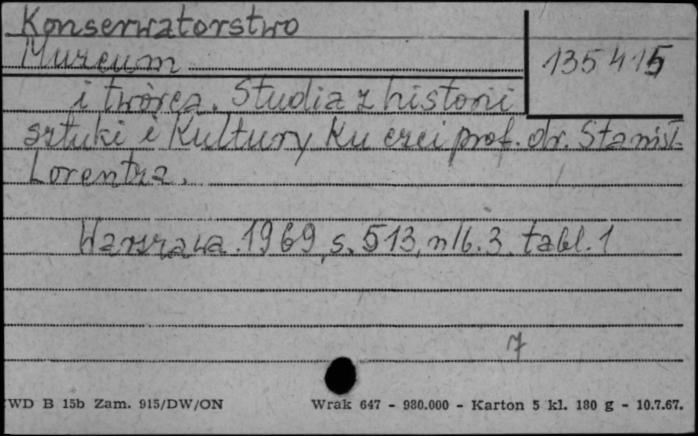 Konserwatorstwo
Muzeum
135 415
i twórca. Studia z historii
sztuki i Kultury Ku czci prof. dr. Stanisł.
Lorentza.
Warszawa. 1969, s. 513, nlb. 3. tabl. 1
7
WD B 15b Zam. 915/DW/ON
Wrak 647 - 980.000 - Karton 5 kl. 180 g - 10.7.67.